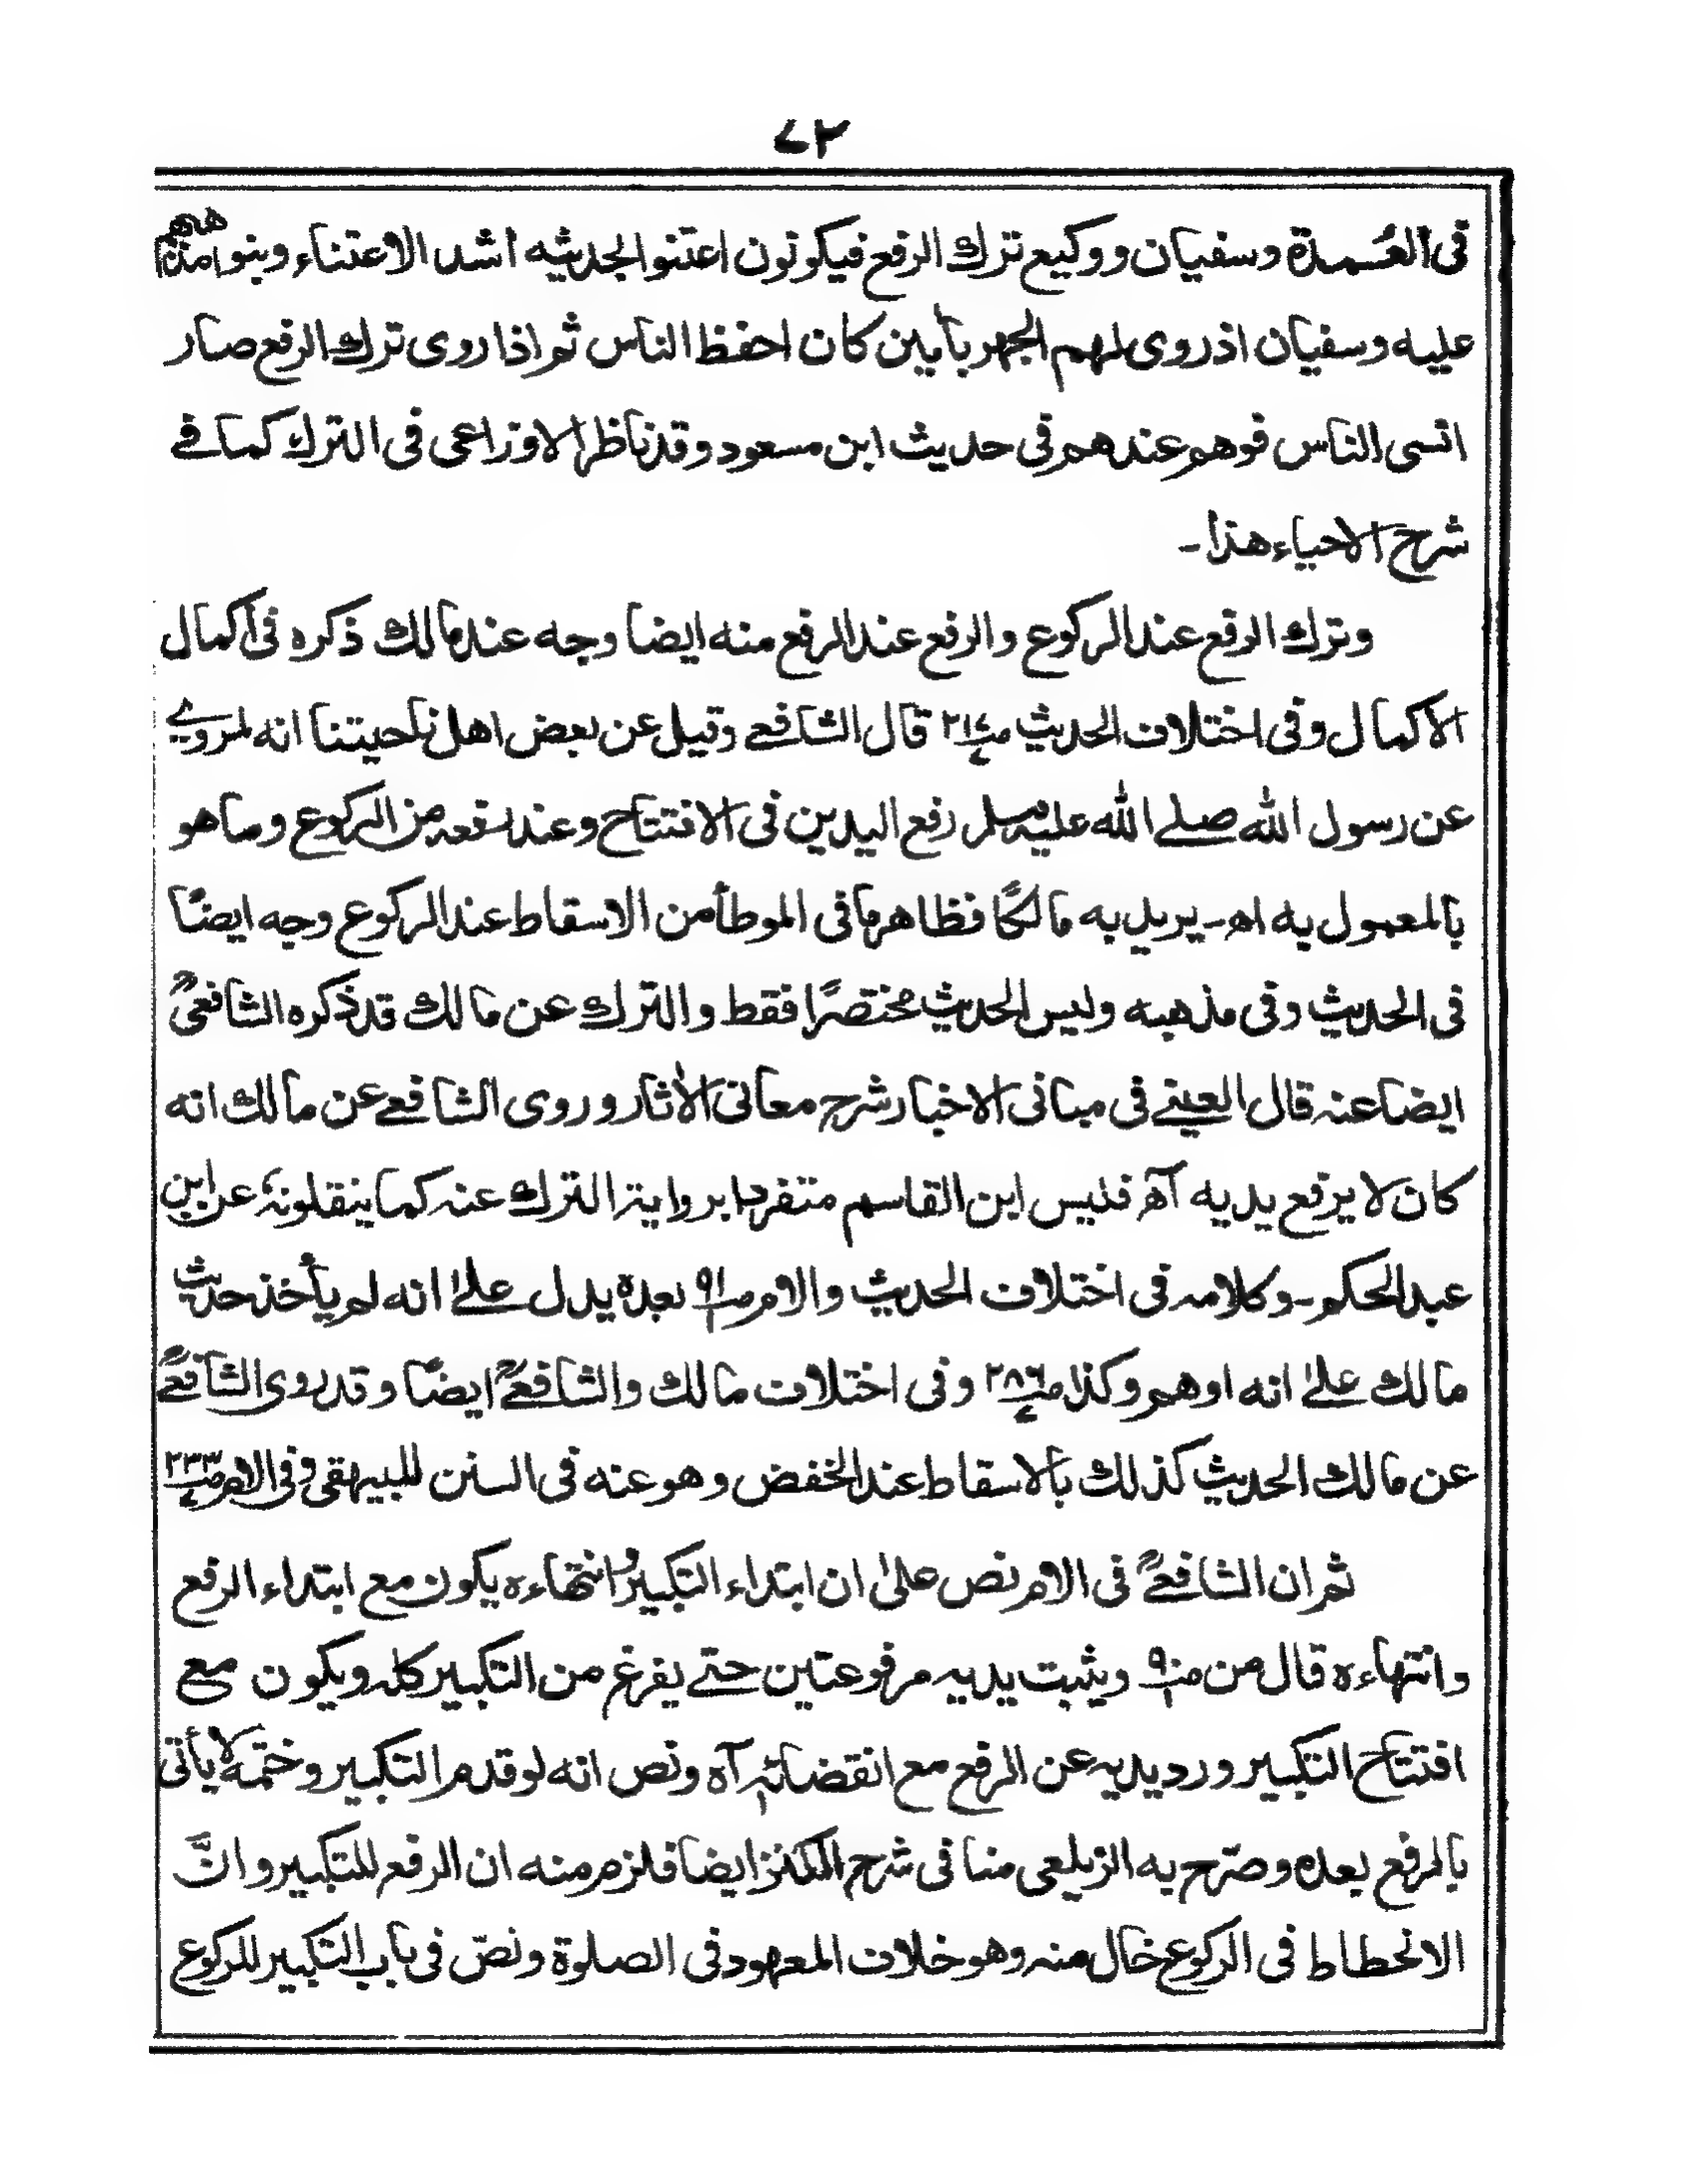 ٧٢
فى العُمدة وسفيان ووكيع ترك الرفع فيكونون اعتنوا بحديثه اشد الاعتناء وبنوا مذهبهم
عليه وسفيان اذ روى لهم الجهر بآمين كان احفظ الناس ثم اذا روى ترك الرفع صار
انسى الناس فوهم عندهم فى حديث ابن مسعود وقد ناظر الاوزاعى فى الترك كما فے
شرح الاحياء هذا۔
وترك الرفع عند الركوع والرفع عند الرفع منه ايضا وجه عند مالك ذكره فى اكمال
الاكمال وفى اختلاف الحديث ص٢١٤ قال الشافعے وقيل عن بعض اهل ناحيتنا انه لمروے
عن رسول الله صلے الله عليه وسلم رفع اليدين فى الافتتاح وعند رفعه من الركوع وما هو
بالمعمول به اھ۔ يريد به مالكًا فظاهر ما فى الموطأ من الاسقاط عند الركوع وجه ايضًا
فى الحديث وفى مذهبه وليس الحديث مختصرًا فقط والترك عن مالك قد ذكره الشافعىؒ
ايضا عنه قال العينے فى مبانى الاخبار شرح معانى الاٰثار وروى الشافعے عن مالك انه
كان لا يرفع يديه آھ فليس ابن القاسم متفردا برواية الترك عنه كما ينقلونہٗ عن ابن
عبد الحكم۔ وكلامه فى اختلاف الحديث والام ص٩١ بعده يدل علےٰ انه لم يأخذ حديث
مالك علےٰ انه اوهم وكذا ص٢٨٦ وفى اختلاف مالك والشافعےؒ ايضًا وقد روى الشافعےؒ
عن مالك الحديث كذلك بالاسقاط عند الخفض وهو عنه فى السنن للبيهقى وفى الام ص٢٣٣
ثم ان الشافعےؒ فى الام نص علىٰ ان ابتداء التكبير وانتهاءه يكون مع ابتداء الرفع
وانتهاءه قال من ص٩٠ ويثبت يديه مرفوعتين حتے يفرغ من التكبير كله ويكون مع
افتتاح التكبير ورد يديه عن الرفع مع انقضائه آه ونص انه لو قدم التكبير وختمه لا يأتى
بالرفع بعده وصرّح به الزيلعى منا فى شرح الكنز ايضا فلزم منه ان الرفع للتكبير وانّ
الانحطاط فى الركوع خال منه وهو خلاف المعهود فى الصلوة ونصّ فى باب التكبير للركوع